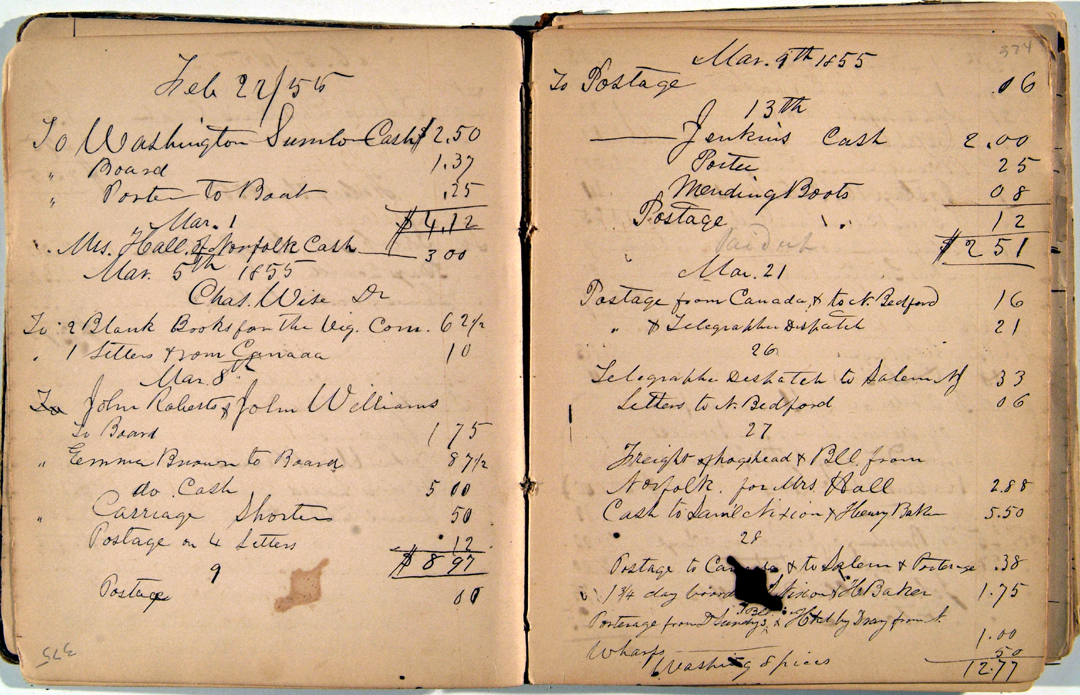 Feb 22/55
To Washington Cash $2.50
" Board 1.37
" Porter to Boat .25
$4.12
Mar. 1
" Mrs. Hall of Norfolk Cash 3 00
Mar. 5th 1855
Chas. Wise Dr
To 2 Blank Books for the Vig. Com. 62 1/2
" 1 Letters from Canada 10
Mar. 8th
To John Roberts & John Williams
To Board 1 75
" Emma Brown to Board 87 1/2
do. Cash 5 00
" Carriage Shorter 50
Postage on 4 Letters 12
$8 97
9
Postage
375
374
Mar. 9th 1855
To Postage .06
13th
Jenkins Cash 2.00
Porter 25
Mending Boots 08
Postage " " 12
$2 51
Mar. 21
Postage from Canada, & to N. Bedford 16
" & Telegraphic Dispatch 21
26
Telegraphic Despatch to Salem NJ 33
Letters to N. Bedford 06
27
Freight of hogshead & Bll from
Norfolk for Mrs Hall 2.88
Cash to Saml Nixon & Henry Baker 5.50
28
Postage to Canada & to Salem & Porterage .38
" 1 3/4 day board Nixon & H Baker 1.75
Porterage from & by Dray from
Wharf 1.00
Washing 8 pieces 50
12.77